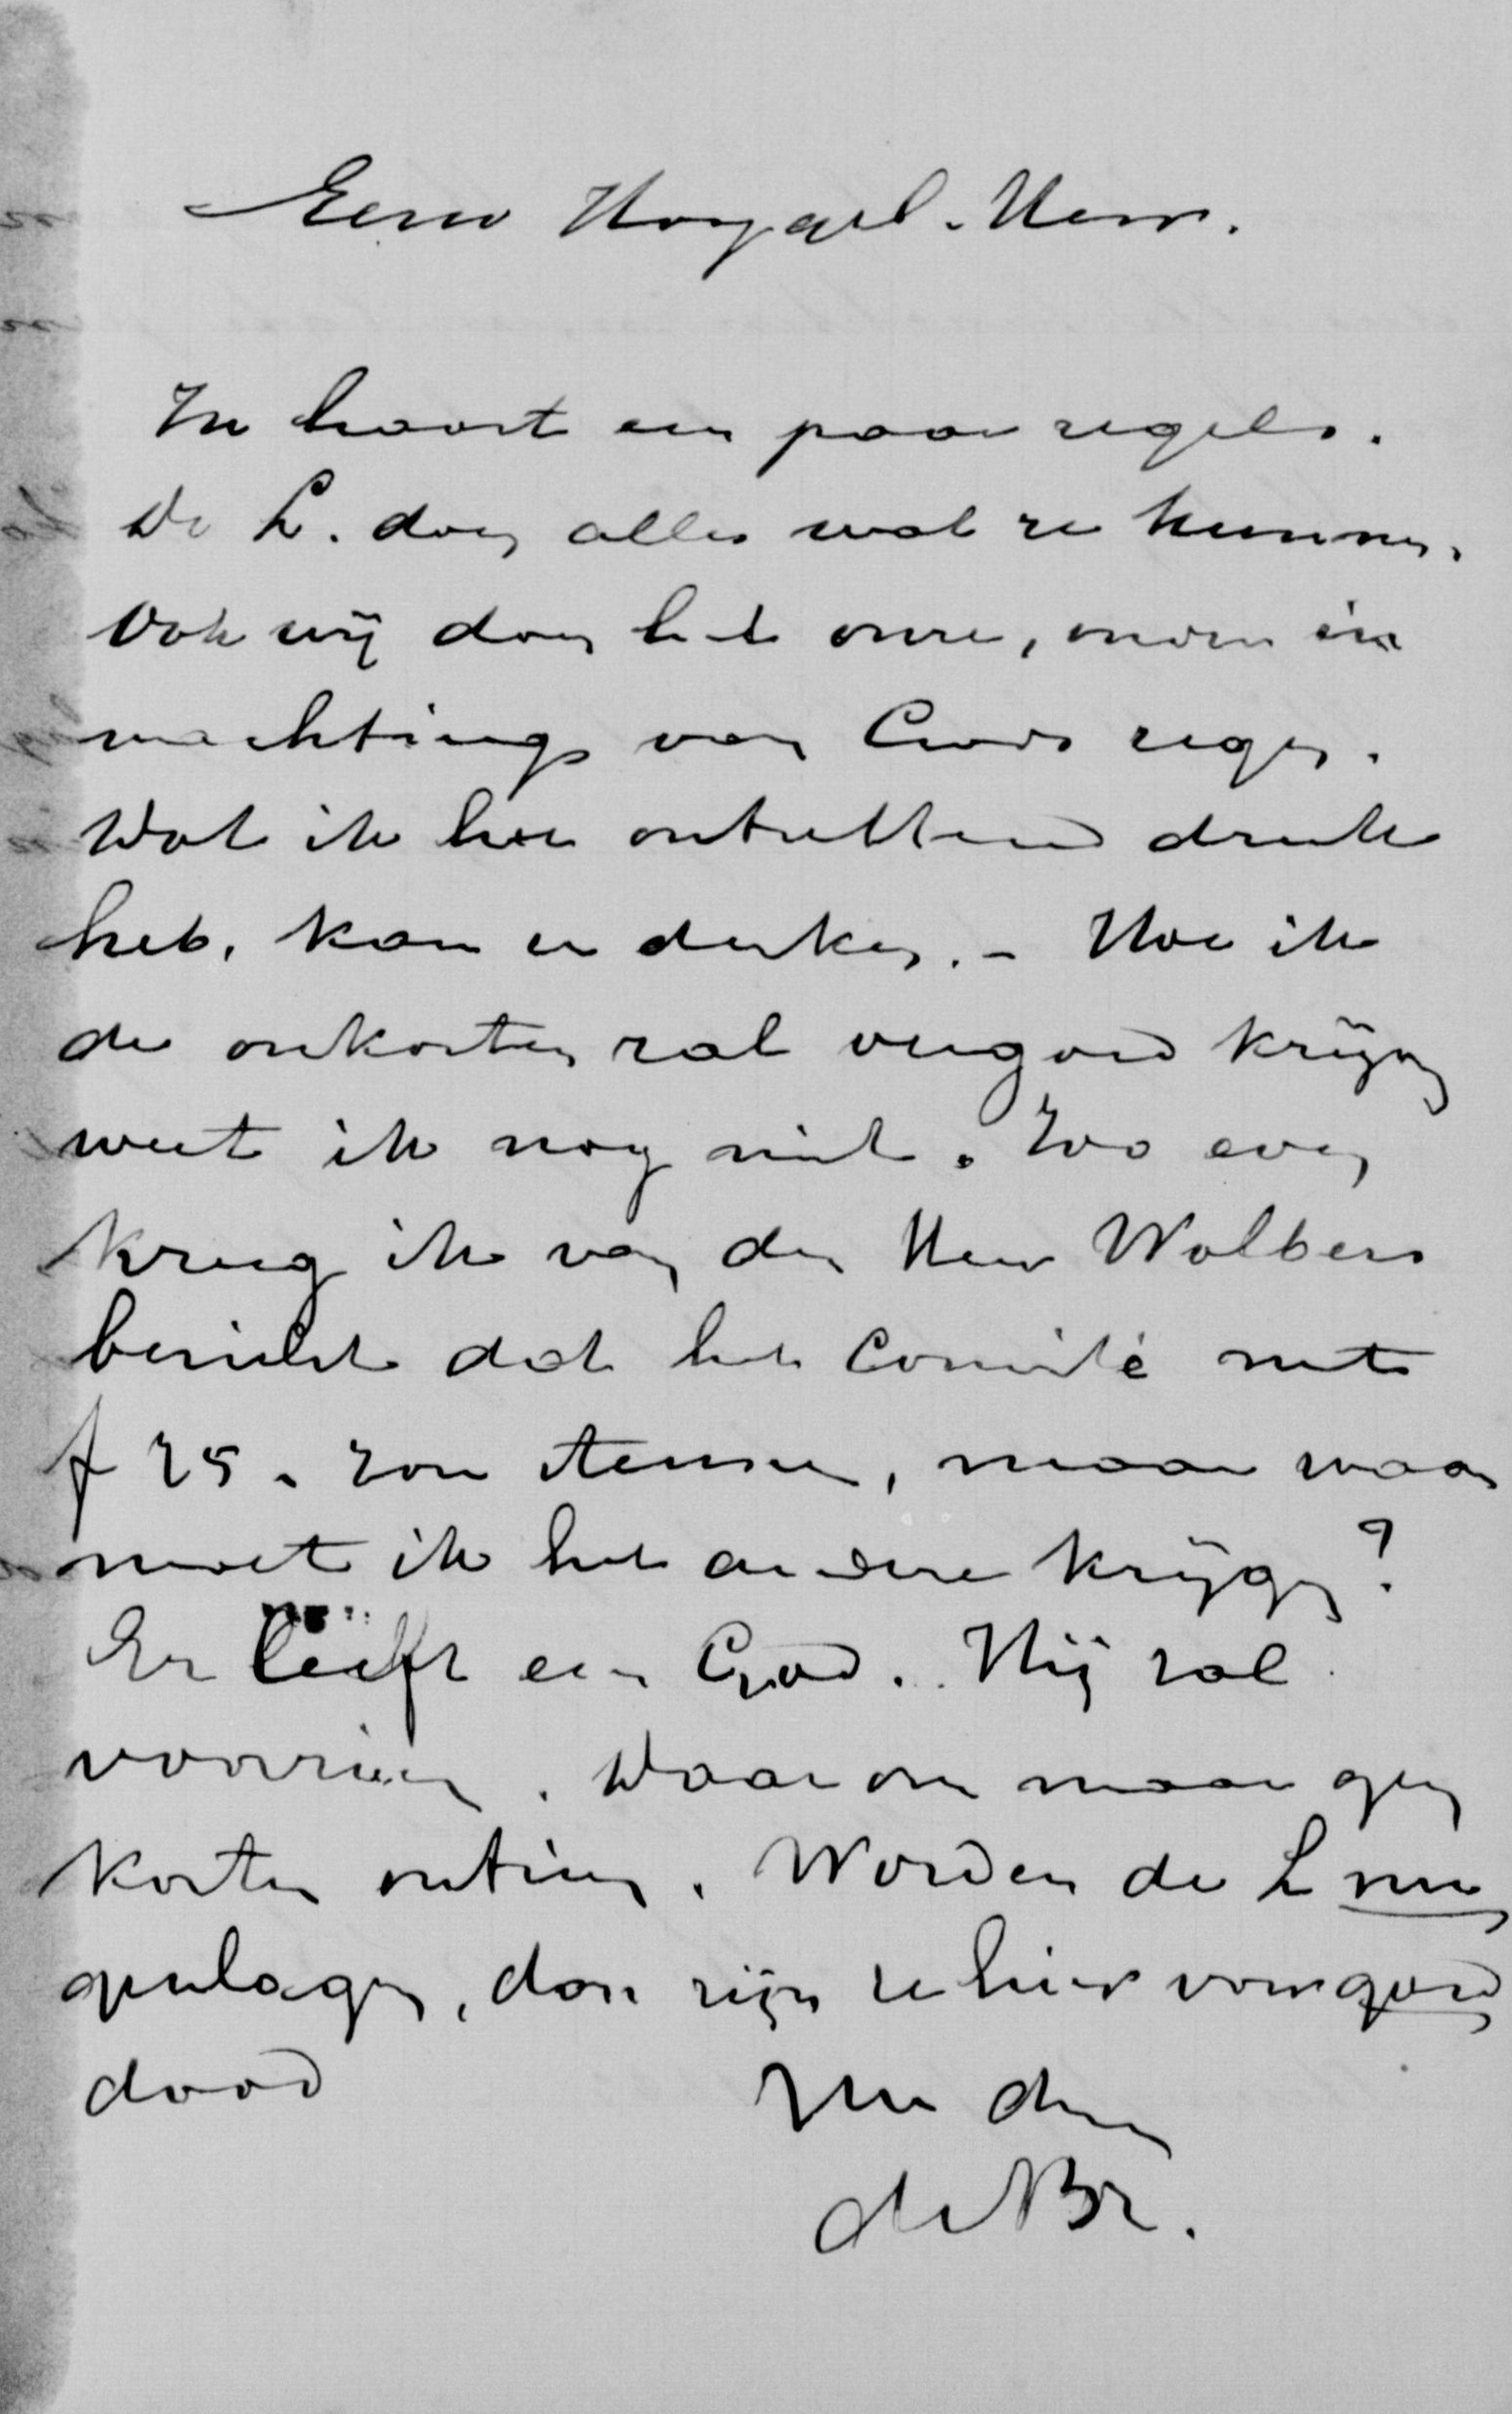 Eerw Hooggel. Heer.
In haast een paar regels.
De L. doen alles wat ze kunnen.
Ook wij doen het onze, onder in
wachting van Gods zegen.
Wat ik hier ontzettend druk
heb, kan u denken. - Hoe ik
de onkosten zal vergoed krijgen
weet ik nog niet. Zoo even
kreeg ik van den Heer Wolbers
bericht dat het Comité met
f 25. zou steunen, maar waar
moet ik het andere krijgen?
Er leeft een God. Hij zal
voorzien. Waarom maar geen
kosten ontzien. Worden de L nu
geslagen, dan zijn ze hier voorgoed
dood
Uw dn
de Br.